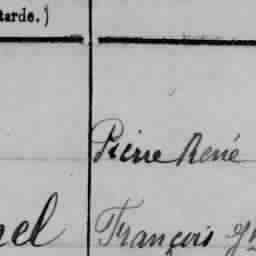 tarde.)
Pierre René
nel François